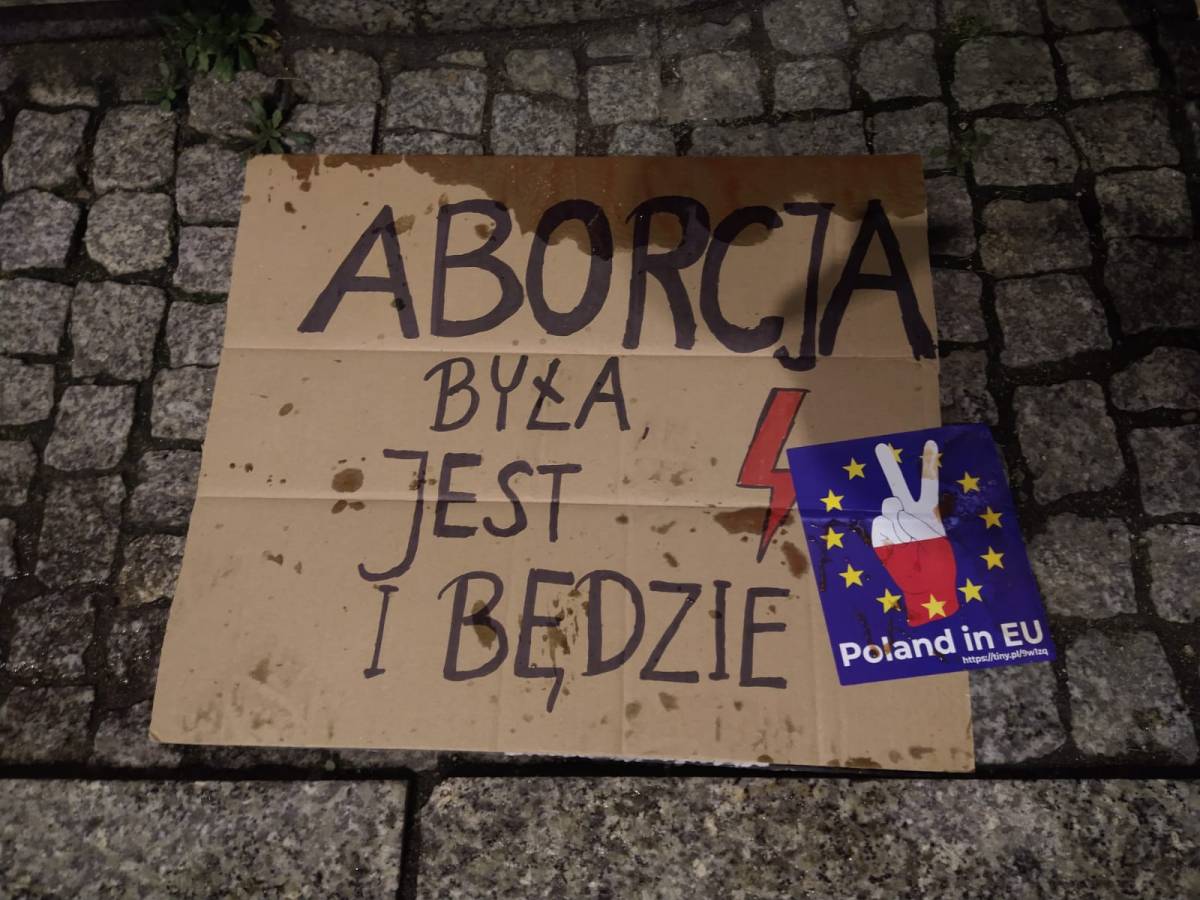 ABORCJA
BYŁA,
JEST
I BĘDZIE
Poland in EU
https://tiny.pl/9w1zq